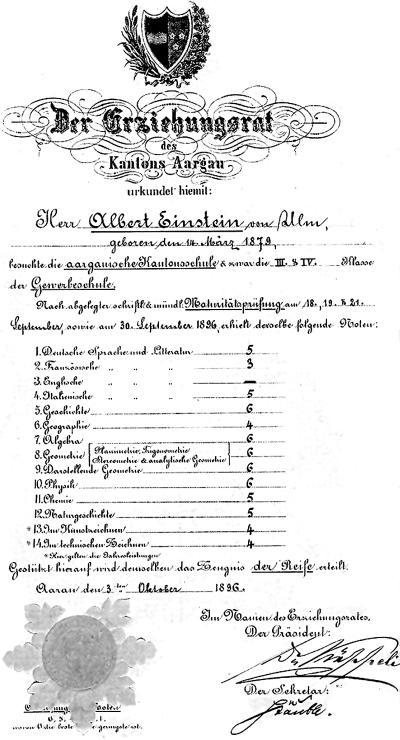 Der Erziehungsrat
des
Kantons Aargau
urkundet hiemit:
Herr Albert Einstein von Ulm,
geboren den 14. März 1879,
besuchte die aargauische Kantonsschule & zwar die III. & IV. Klasse
der Gewerbeschule.
Nach abgelegter schriftl. & mündl. Maturitätsprüfung am 18., 19. & 21.
September, sowie am 30. September 1896, erhielt derselbe folgende Noten:
1. Deutsche Sprache und Litteratur 5
2. Französische " " " 3
3. Englische " " " —
4. Italienische " " " 5
5. Geschichte 6
6. Geographie 4
7. Algebra 6
8. Geometrie (Planimetrie, Trigonometrie Stereometrie & analytische Geometrie) 6
9. Darstellende Geometrie 6
10. Physik 6
11. Chemie 5
12. Naturgeschichte 5
*13. Im Kunstzeichnen 4
*14. Im technischen Zeichnen 4
*Hier gelten die Jahresleistungen
Gestützt hierauf wird demselben das Zeugnis der Reife erteilt.
Aarau den 3ten Oktober 1896.
Im Namen des Erziehungsrates,
Der Präsident:
Der Sekretär: